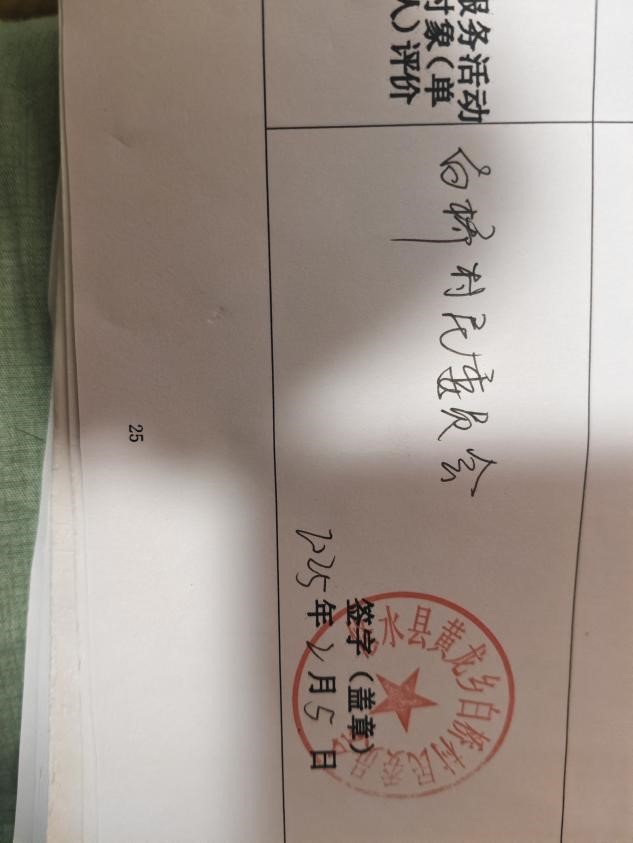 服务活动
对象（单
人）评价
白桥村民委员会
水县黄龙乡白桥村民委员
签字（盖章）
2025年2月5日
25